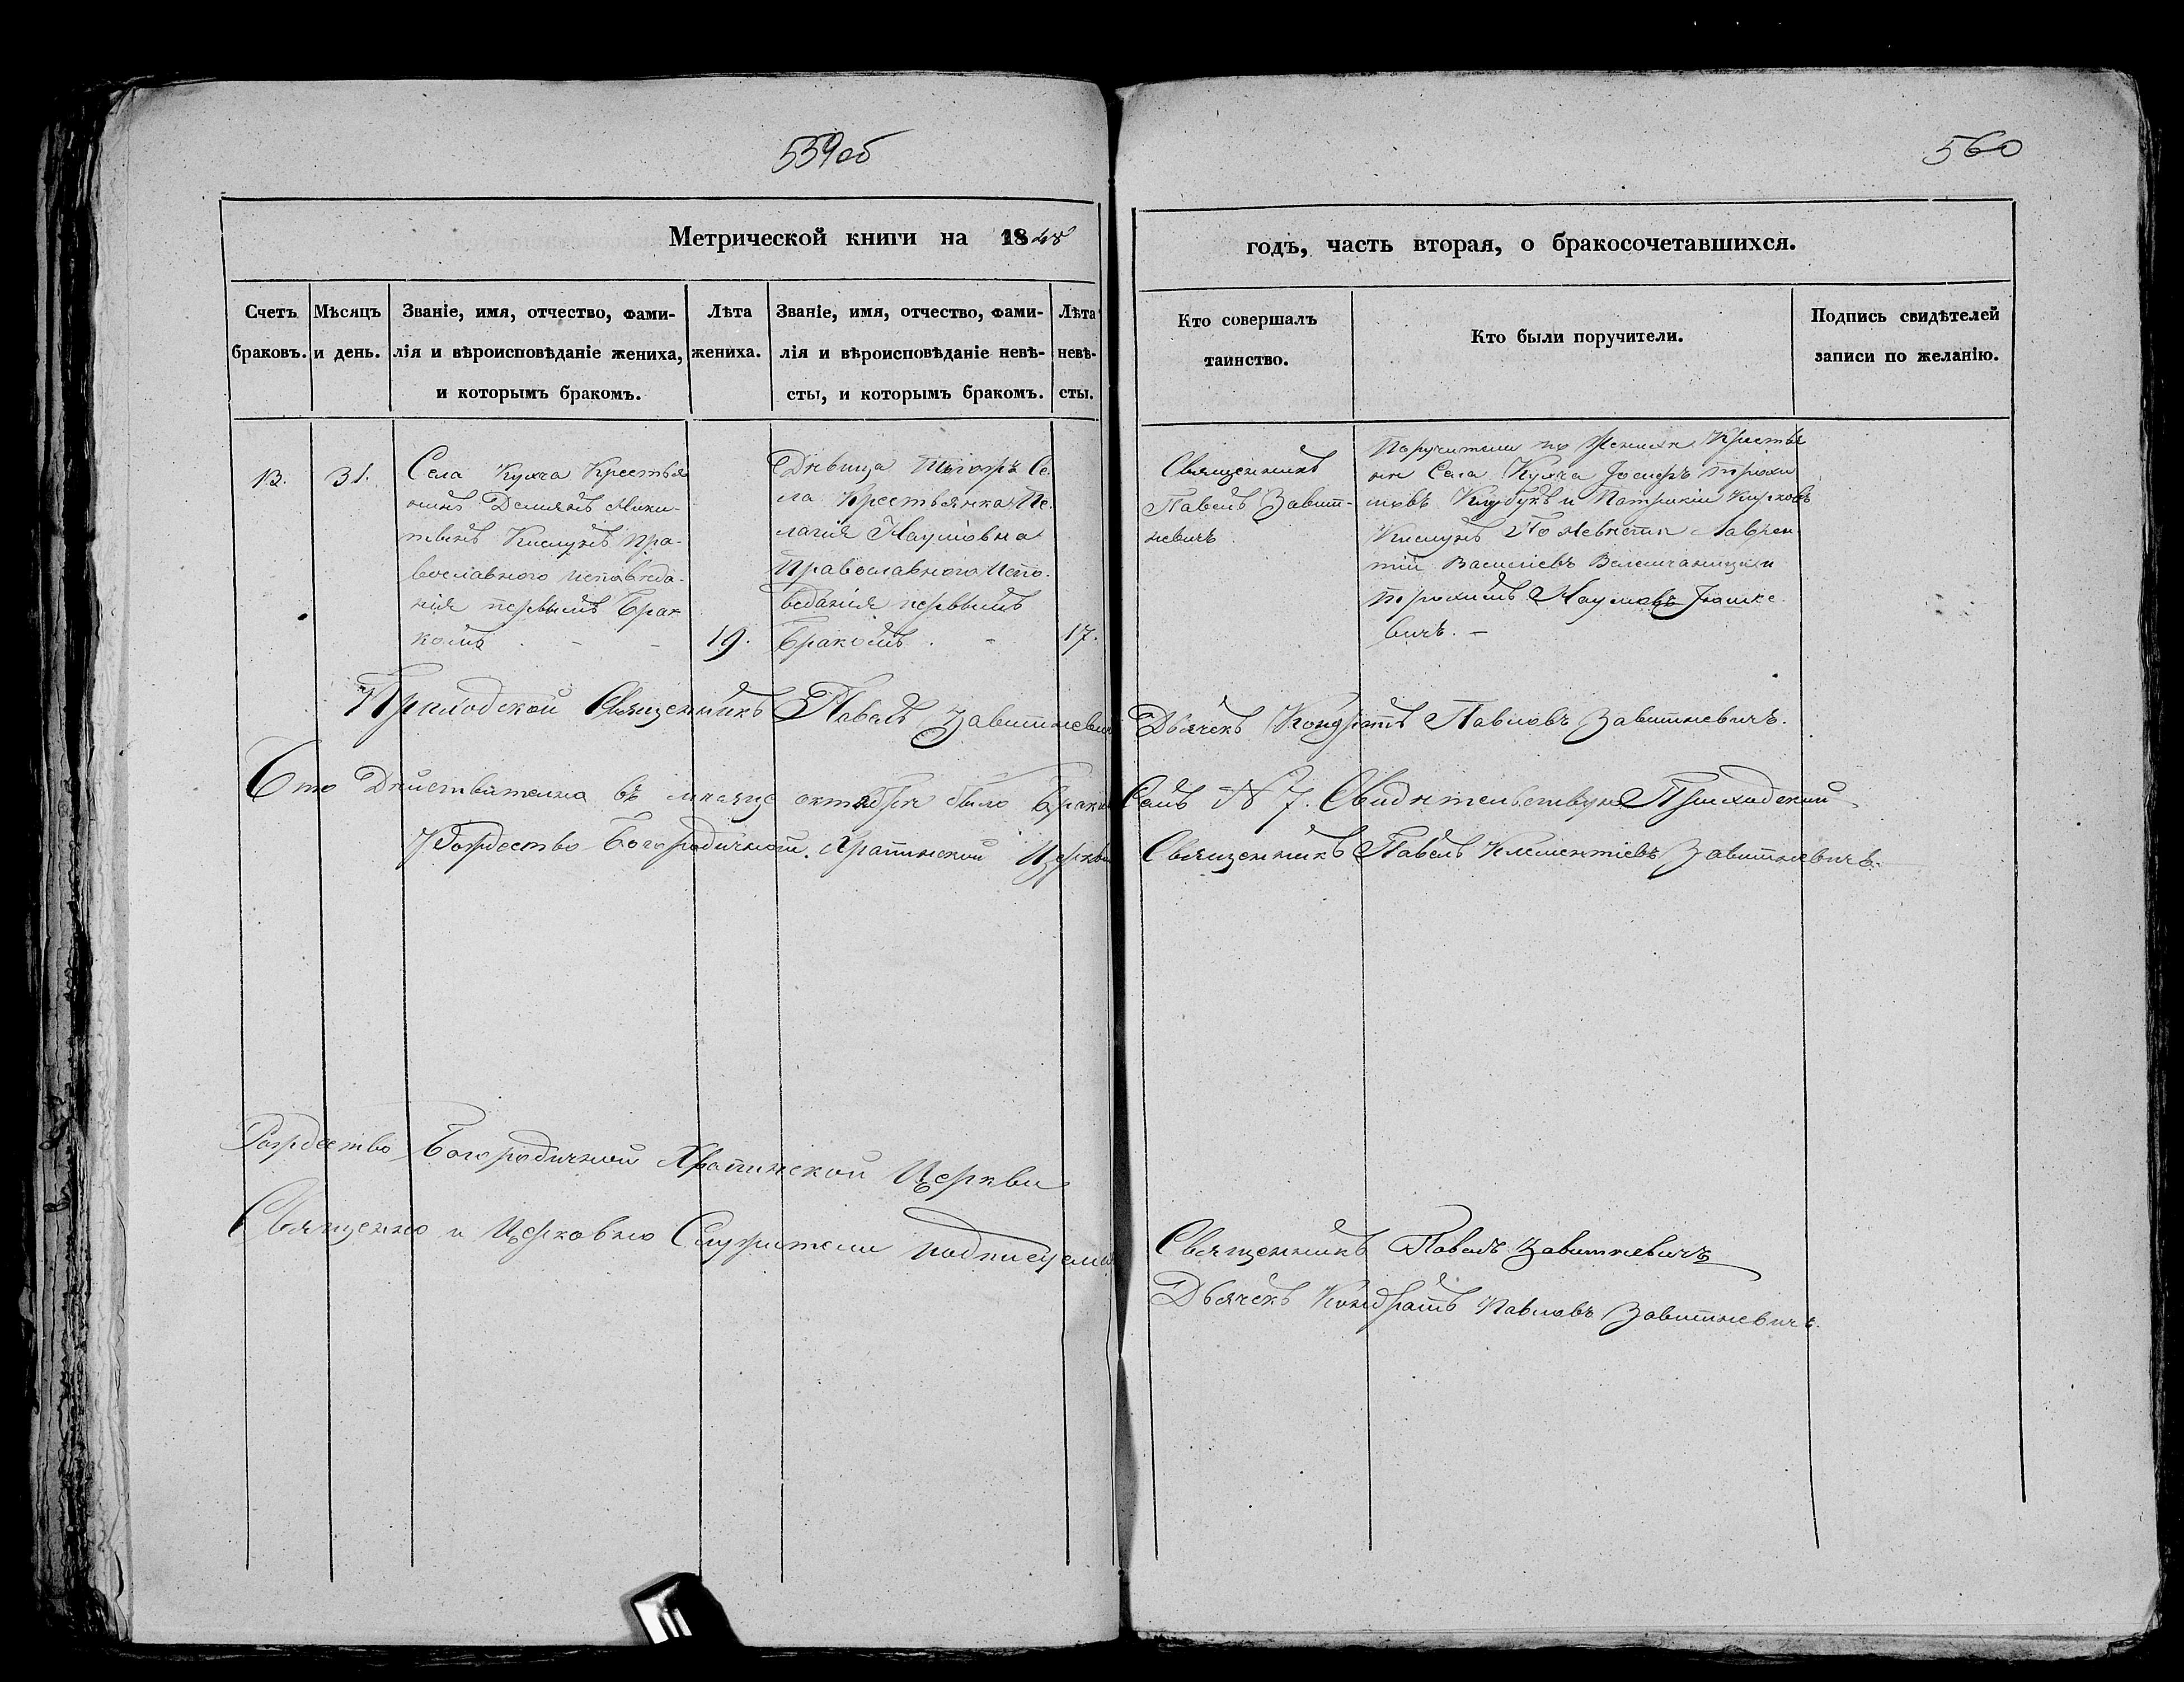 559об
560
Метрической книги на 1848
годъ, часть вторая, о бракосочетавшихся.
Счетъ браковъ.
Мѣсяцъ и день.
Званіе, имя, отчество, фами-
лія и вѣроисповѣданіе жениха,
и которымъ бракомъ.
Лѣта
жениха.
Званіе, имя, отчество, фами-
лія и вѣроисповѣданіе невѣ-
сты, и которымъ бракомъ.
Лѣта
невѣ-
сты.
Кто совершалъ
таинство.
Кто были поручители.
Подпись свидѣтелей
записи по желанію.
13.
31.
Села Кухча Крестья
нинъ Демянъ Мики-
тинъ Кислукъ Пра-
вославного исповѣда-
нія первымъ Брак
комъ
19.
Дѣвица Се
ла Крестьянка Пе
лагія Наумовна
Православного Испо-
веданія первымъ
Бракомъ
17.
Священникъ
Павелъ Завит-
невичъ
Поручители по Женихѣ Крестья
не Села Кухча Іосифъ Трохи
мовъ и Патрикій
Кислукъ По Невѣсти Лаврен
тій Василіевъ и
Трохимъ Наумовъ Юшке
вичъ. –
Приходской Священникъ Павелъ Завитневичъ
Дьячекъ Кондратъ Павловъ Завитневичъ.
Что Дѣйствително въ мѣсяце октябрѣ было Брако
Семь N 7. Свидѣтельствую Приходский
Рождество Богородичной Храпинской Церкви
Священникъ Павелъ Клементіевъ Завитневичъ.
Рождество Богородичной Храпинской Церкви
Священно и Церковно Служители подписуемъ
Священникъ Павелъ Завитневичъ
Дьячекъ Кондратъ Павловъ Завитневичъ.